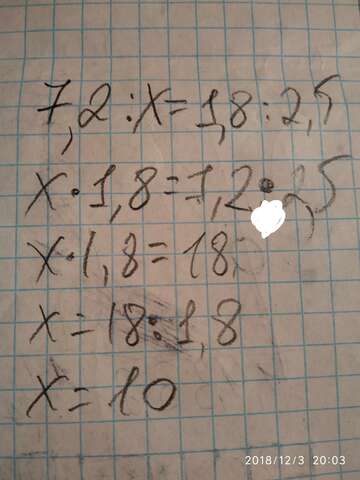 7,2:x=1,8:2,5
x·1,8=7,2·2,5
x·1,8=18
x=18:1,8
x=10
2018/12/3 20:03